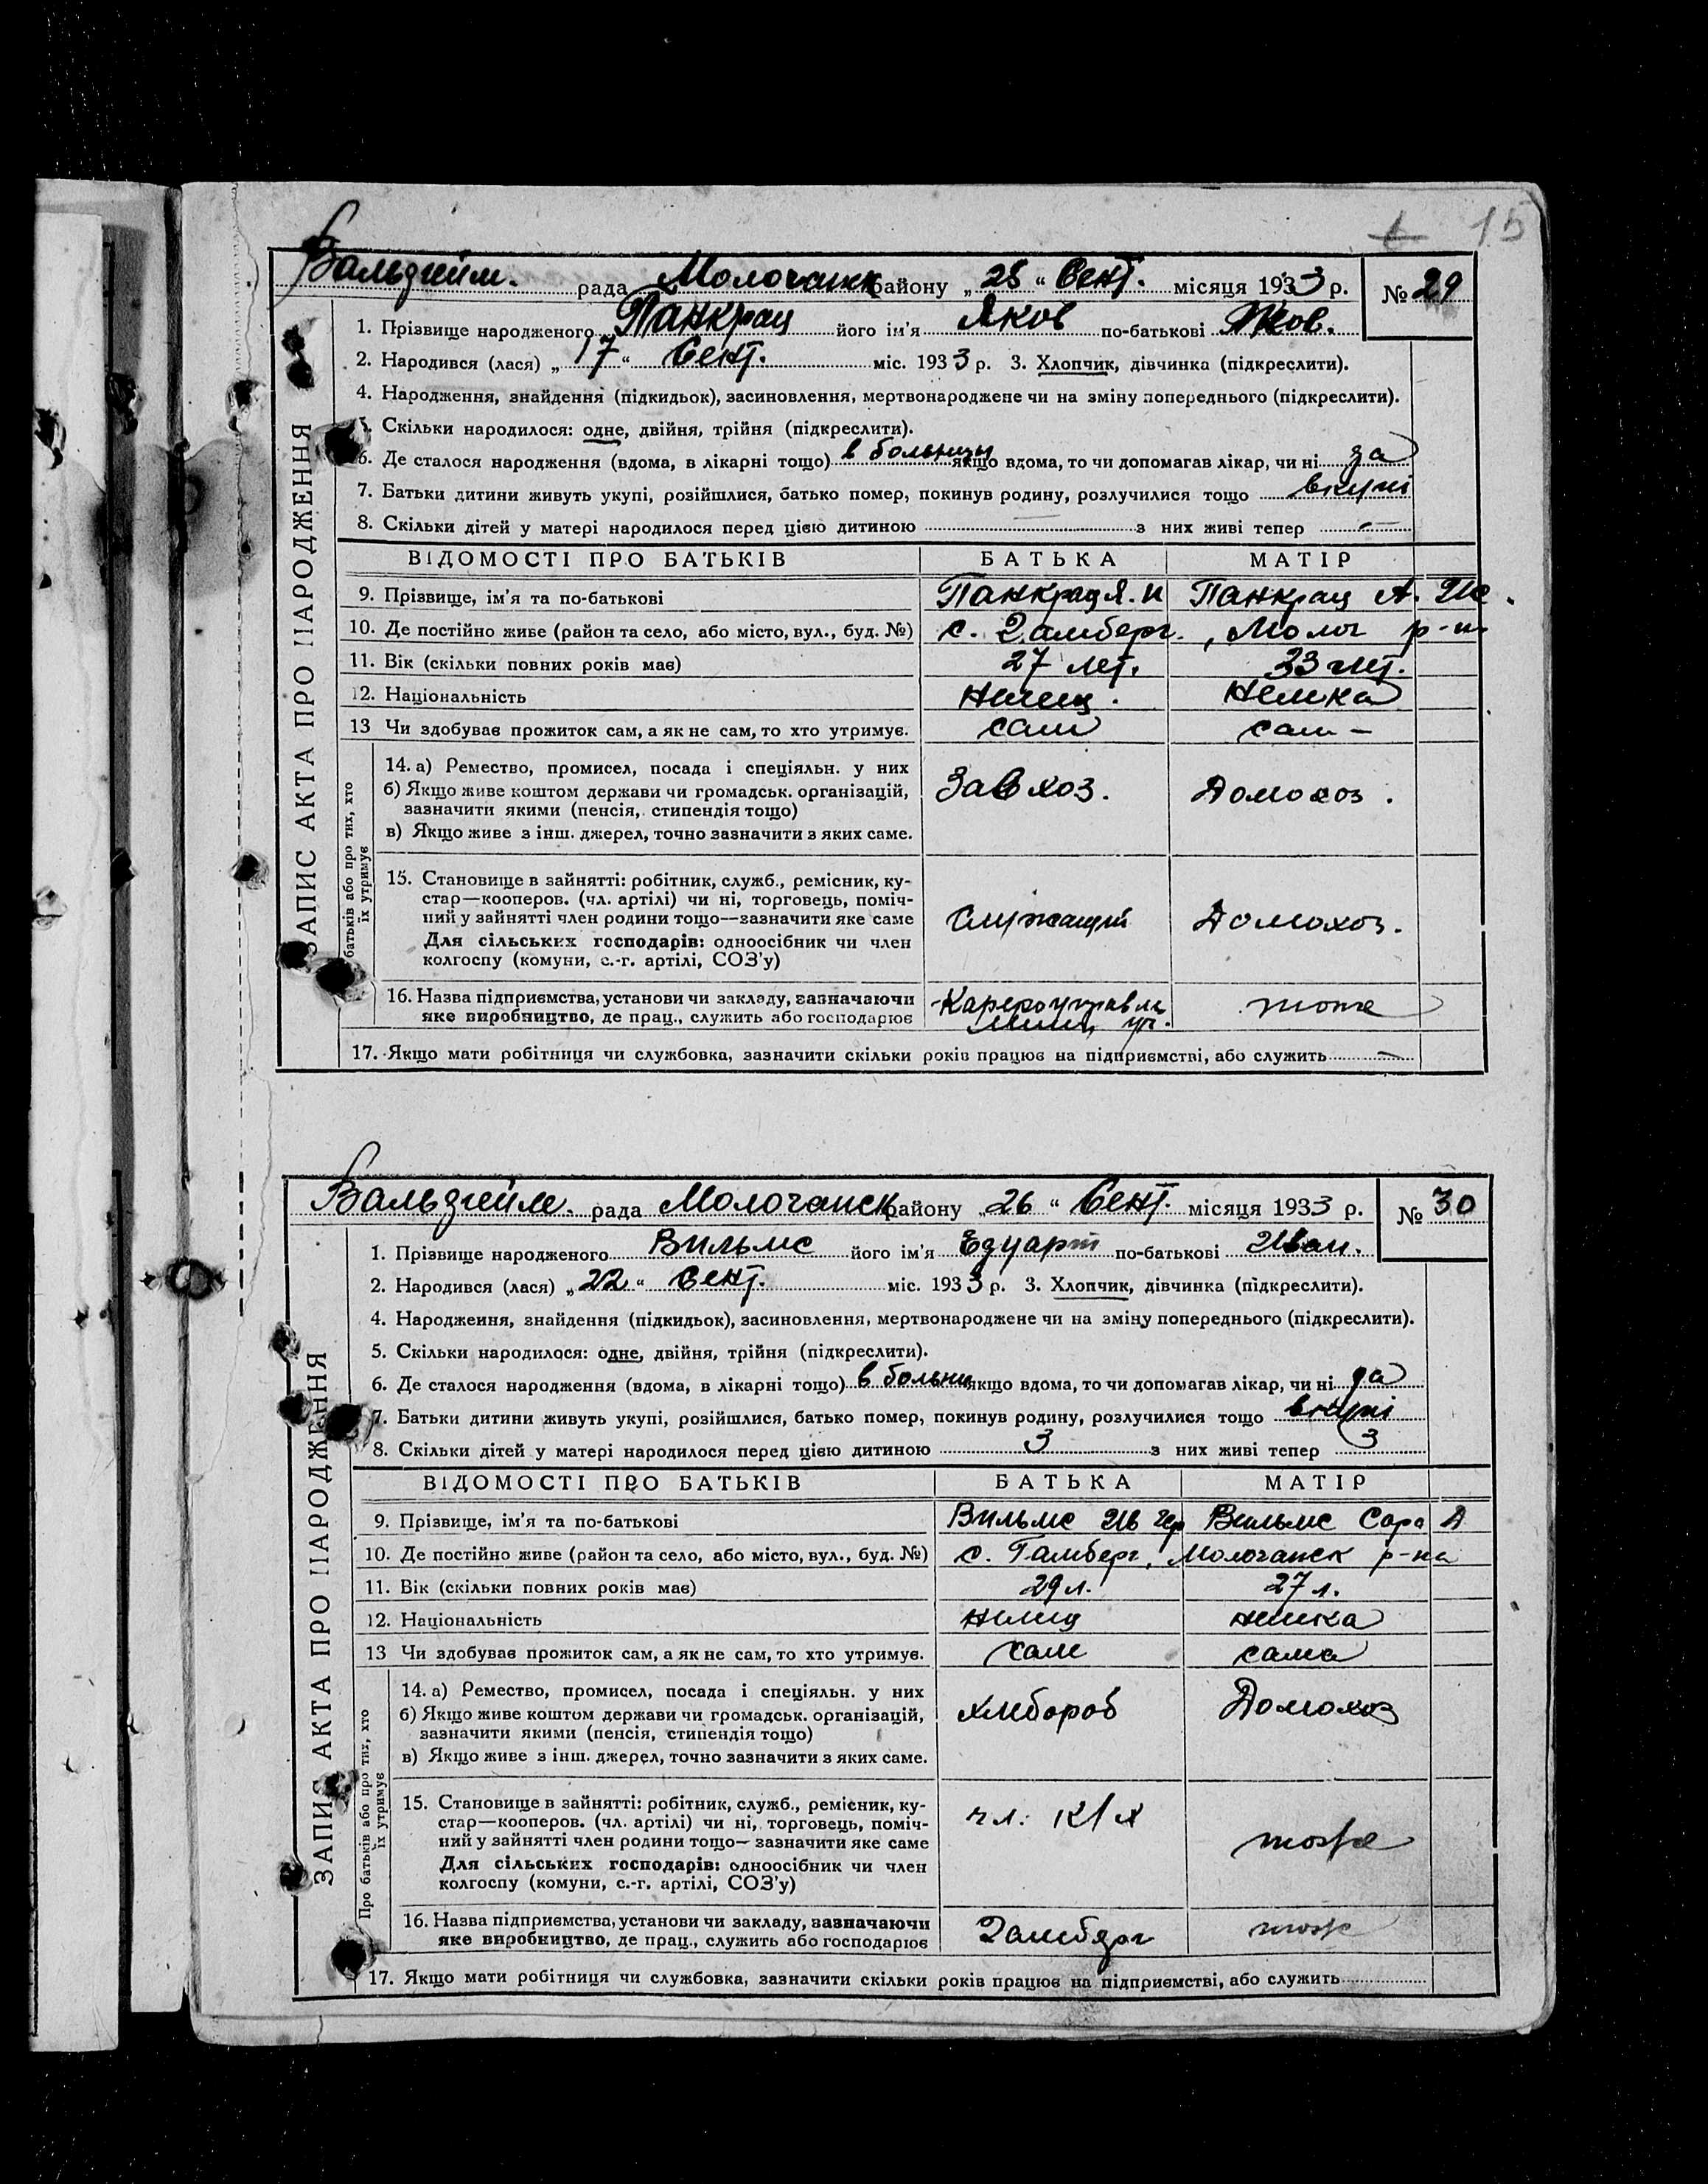 15
Вальдгейм. рада Молочанск району „ 25 “ Сент. місяця 1933 р. № 29
1. Прізвище народженого Панкрац його ім'я Яков по-батькові Яков.
2. Народився (лася) „ 17 “ Сент. міс. 1933 р. 3. Хлопчик, дівчинка (підкреслити).
4. Народження, знайдення (підкидьок), засиновлення, мертвонароджене чи на зміну попереднього (підкреслити).
5. Скільки народилося: одне, двійня, трійня (підкреслити).
6. Де сталося народження (вдома, в лікарні тощо) в больницы якщо вдома, то чи допомагав лікар, чи ні да
7. Батьки дитини живуть укупі, розійшлися, батько помер, покинув родину, розлучилися тощо вкупі
8. Скільки дітей у матері народилося перед цією дитиною — з них живі тепер —
ЗАПИС АКТА ПРО НАРОДЖЕННЯ
ВІДОМОСТІ ПРО БАТЬКІВ БАТЬКА МАТІР
9. Прізвище, ім'я та по-батькові Панкрац Я. И Панкрац А.
10. Де постійно живе (район та село, або місто, вул., буд. №) с. Гамберг. , Молоч р-н
11. Вік (скільки повних років має) 27 лет. 33 лет.
12. Національність Немец. Немка
13 Чи здобуває прожиток сам, а як не сам, то хто утримує. сам сам –
батьків або про тих, хто їх утримує
14. а) Ремество, промисел, посада і спеціяльн. у них
б) Якщо живе коштом держави чи громадськ. організацій,
зазначити якими (пенсія, стипендія тощо)
Завхоз. Домохоз.
в) Якщо живе з інш. джерел, точно зазначити з яких саме.
15. Становище в зайнятті: робітник, служб., ремісник, ку-
стар—кооперов. (чл. артілі) чи ні, торговець, поміч-
ний у зайнятті член родини тощо—зазначити яке саме
Служащий Домохоз.
Для сільських господарів: одноосібник чи член
колгоспу (комуни, с.-г. артілі, СОЗ'у)
16. Назва підприємства, установи чи закладу, зазначаючи
яке виробництво, де прац., служить або господарює
тоже
17. Якщо мати робітниця чи службовка, зазначити скільки років працює на підприємстві, або служить —
Вальдгейм. рада Молочанск району „ 26 “ Сент. місяця 1933 р. № 30
1. Прізвище народженого Вильмс його ім'я Едуарт по-батькові Иван.
2. Народився (лася) „ 22 “ Сент. міс. 1933 р. 3. Хлопчик, дівчинка (підкреслити).
4. Народження, знайдення (підкидьок), засиновлення, мертвонароджене чи на зміну попереднього (підкреслити).
5. Скільки народилося: одне, двійня, трійня (підкреслити).
6. Де сталося народження (вдома, в лікарні тощо) в больни якщо вдома, то чи допомагав лікар, чи ні да
7. Батьки дитини живуть укупі, розійшлися, батько помер, покинув родину, розлучилися тощо вкупі
8. Скільки дітей у матері народилося перед цією дитиною 3 з них живі тепер 3
ЗАПИС АКТА ПРО НАРОДЖЕННЯ
ВІДОМОСТІ ПРО БАТЬКІВ БАТЬКА МАТІР
9. Прізвище, ім'я та по-батькові Вильмс Ив Гер Вильмс Сара Д
10. Де постійно живе (район та село, або місто, вул., буд. №) с. Гамберг, Молочанск р-на
11. Вік (скільки повних років має) 29 л. 27 л.
12. Національність Немец немка
13 Чи здобуває прожиток сам, а як не сам, то хто утримує. сам сама
Про батьків або про тих, хто їх утримує
14. а) Ремество, промисел, посада і спеціяльн. у них
б) Якщо живе коштом держави чи громадськ. організацій,
зазначити якими (пенсія, стипендія тощо)
хлибороб Домохоз
в) Якщо живе з інш. джерел, точно зазначити з яких саме.
15. Становище в зайнятті: робітник, служб., ремісник, ку-
стар—кооперов. (чл. артілі) чи ні, торговець, поміч-
ний у зайнятті член родини тощо— зазначити яке саме
чл. к/х тоже
Для сільських господарів: одноосібник чи член
колгоспу (комуни, с.-г. артілі, СОЗ'у)
16. Назва підприємства, установи чи закладу, зазначаючи
яке виробництво, де прац., служить або господарює
Гамберг тоже
17. Якщо мати робітниця чи службовка, зазначити скільки років працює на підприємстві, або служить